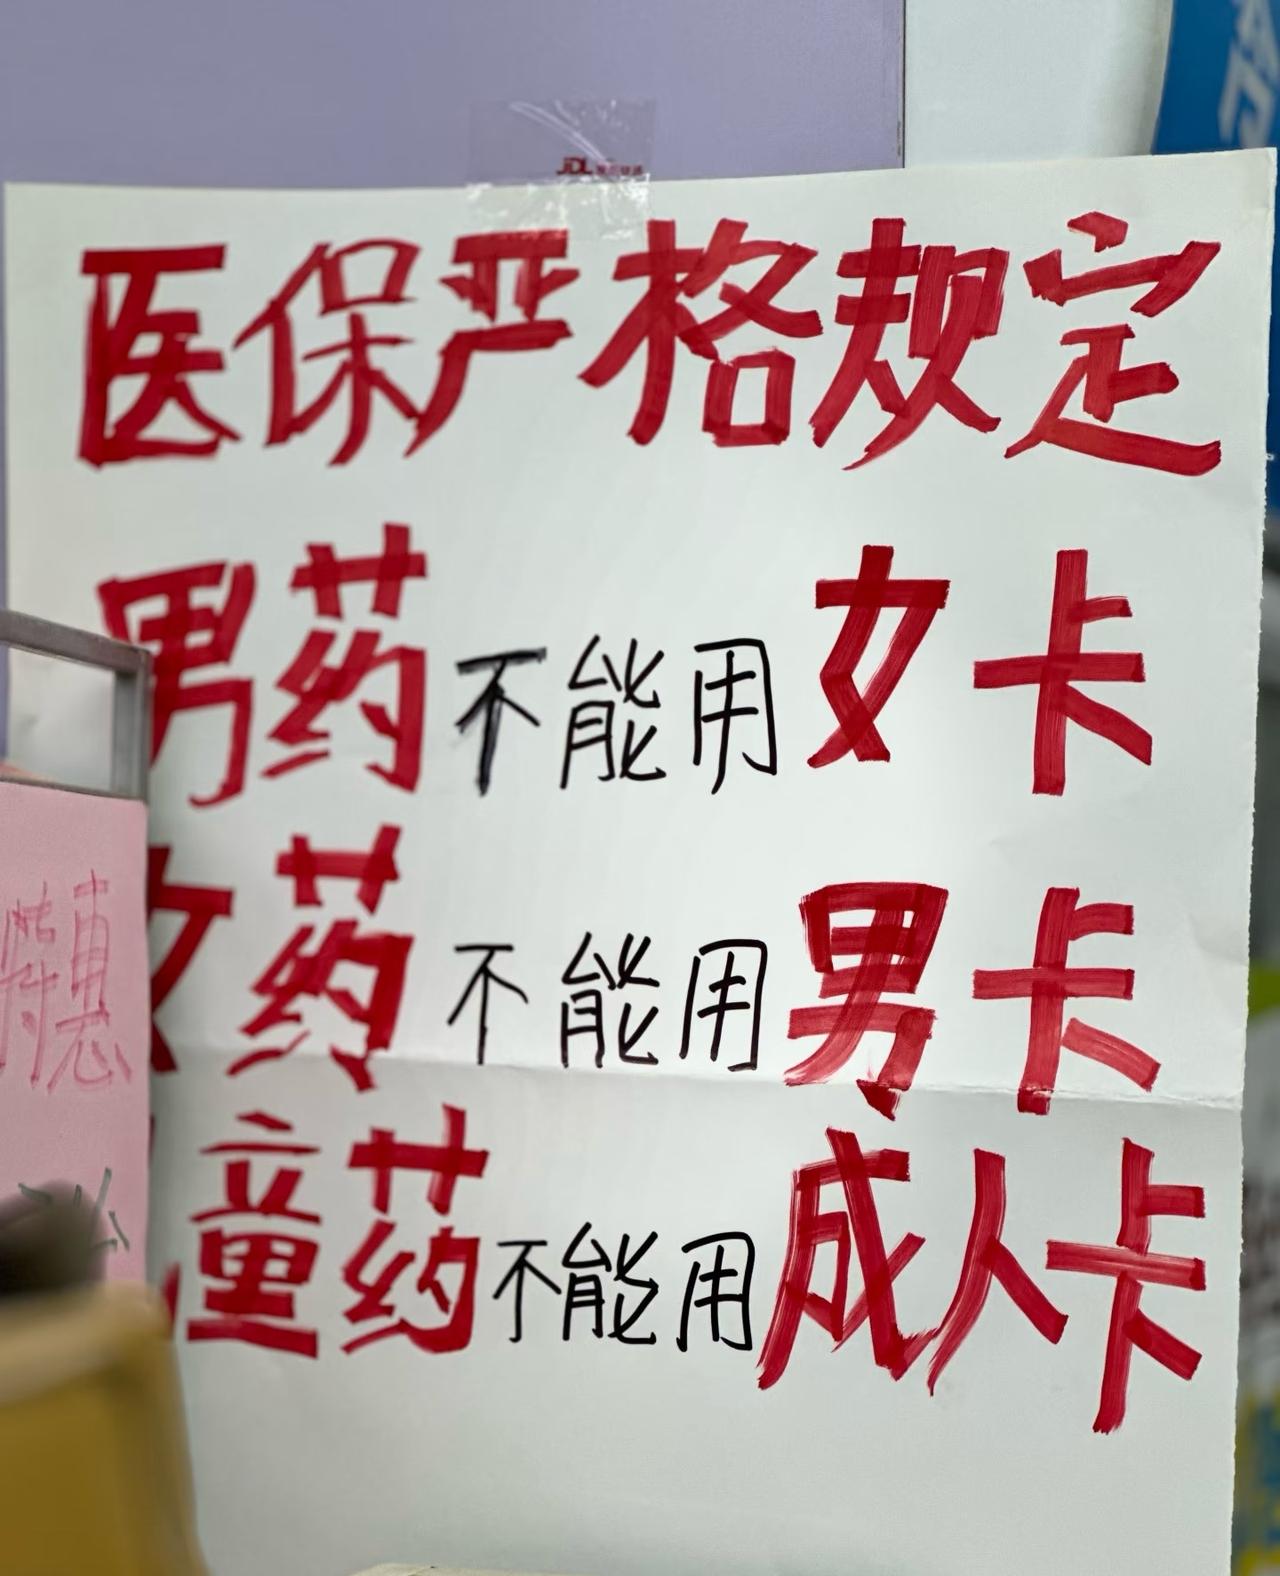 JDL
医保严格规定
男药不能用女卡
女药不能用男卡
童药不能用成人卡
特惠